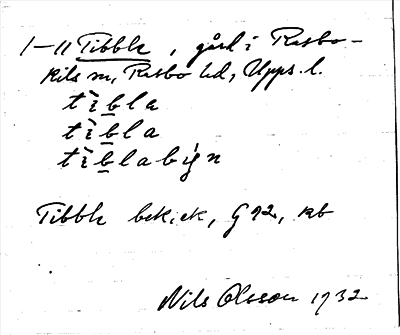 1-11 Tibble, gård i Rasbo-
kils sn, Rasbo hd, Upps. l.
tìbla
tìbla
tìblabýn
Tibble bek.ek, G 92, kb
Nils Olsson 1932